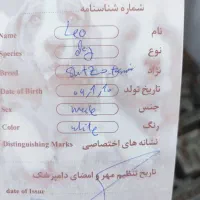 شماره شناسنامه
Name Leo نام
Species dog نوع
Breed نژاد
Date of Birth تاریخ تولد
Sex male جنس
Color white رنگ
Distinguishing Marks نشانه های اختصاصی
تاریخ تنظیم مهر و امضای دامپزشک
date of Issue